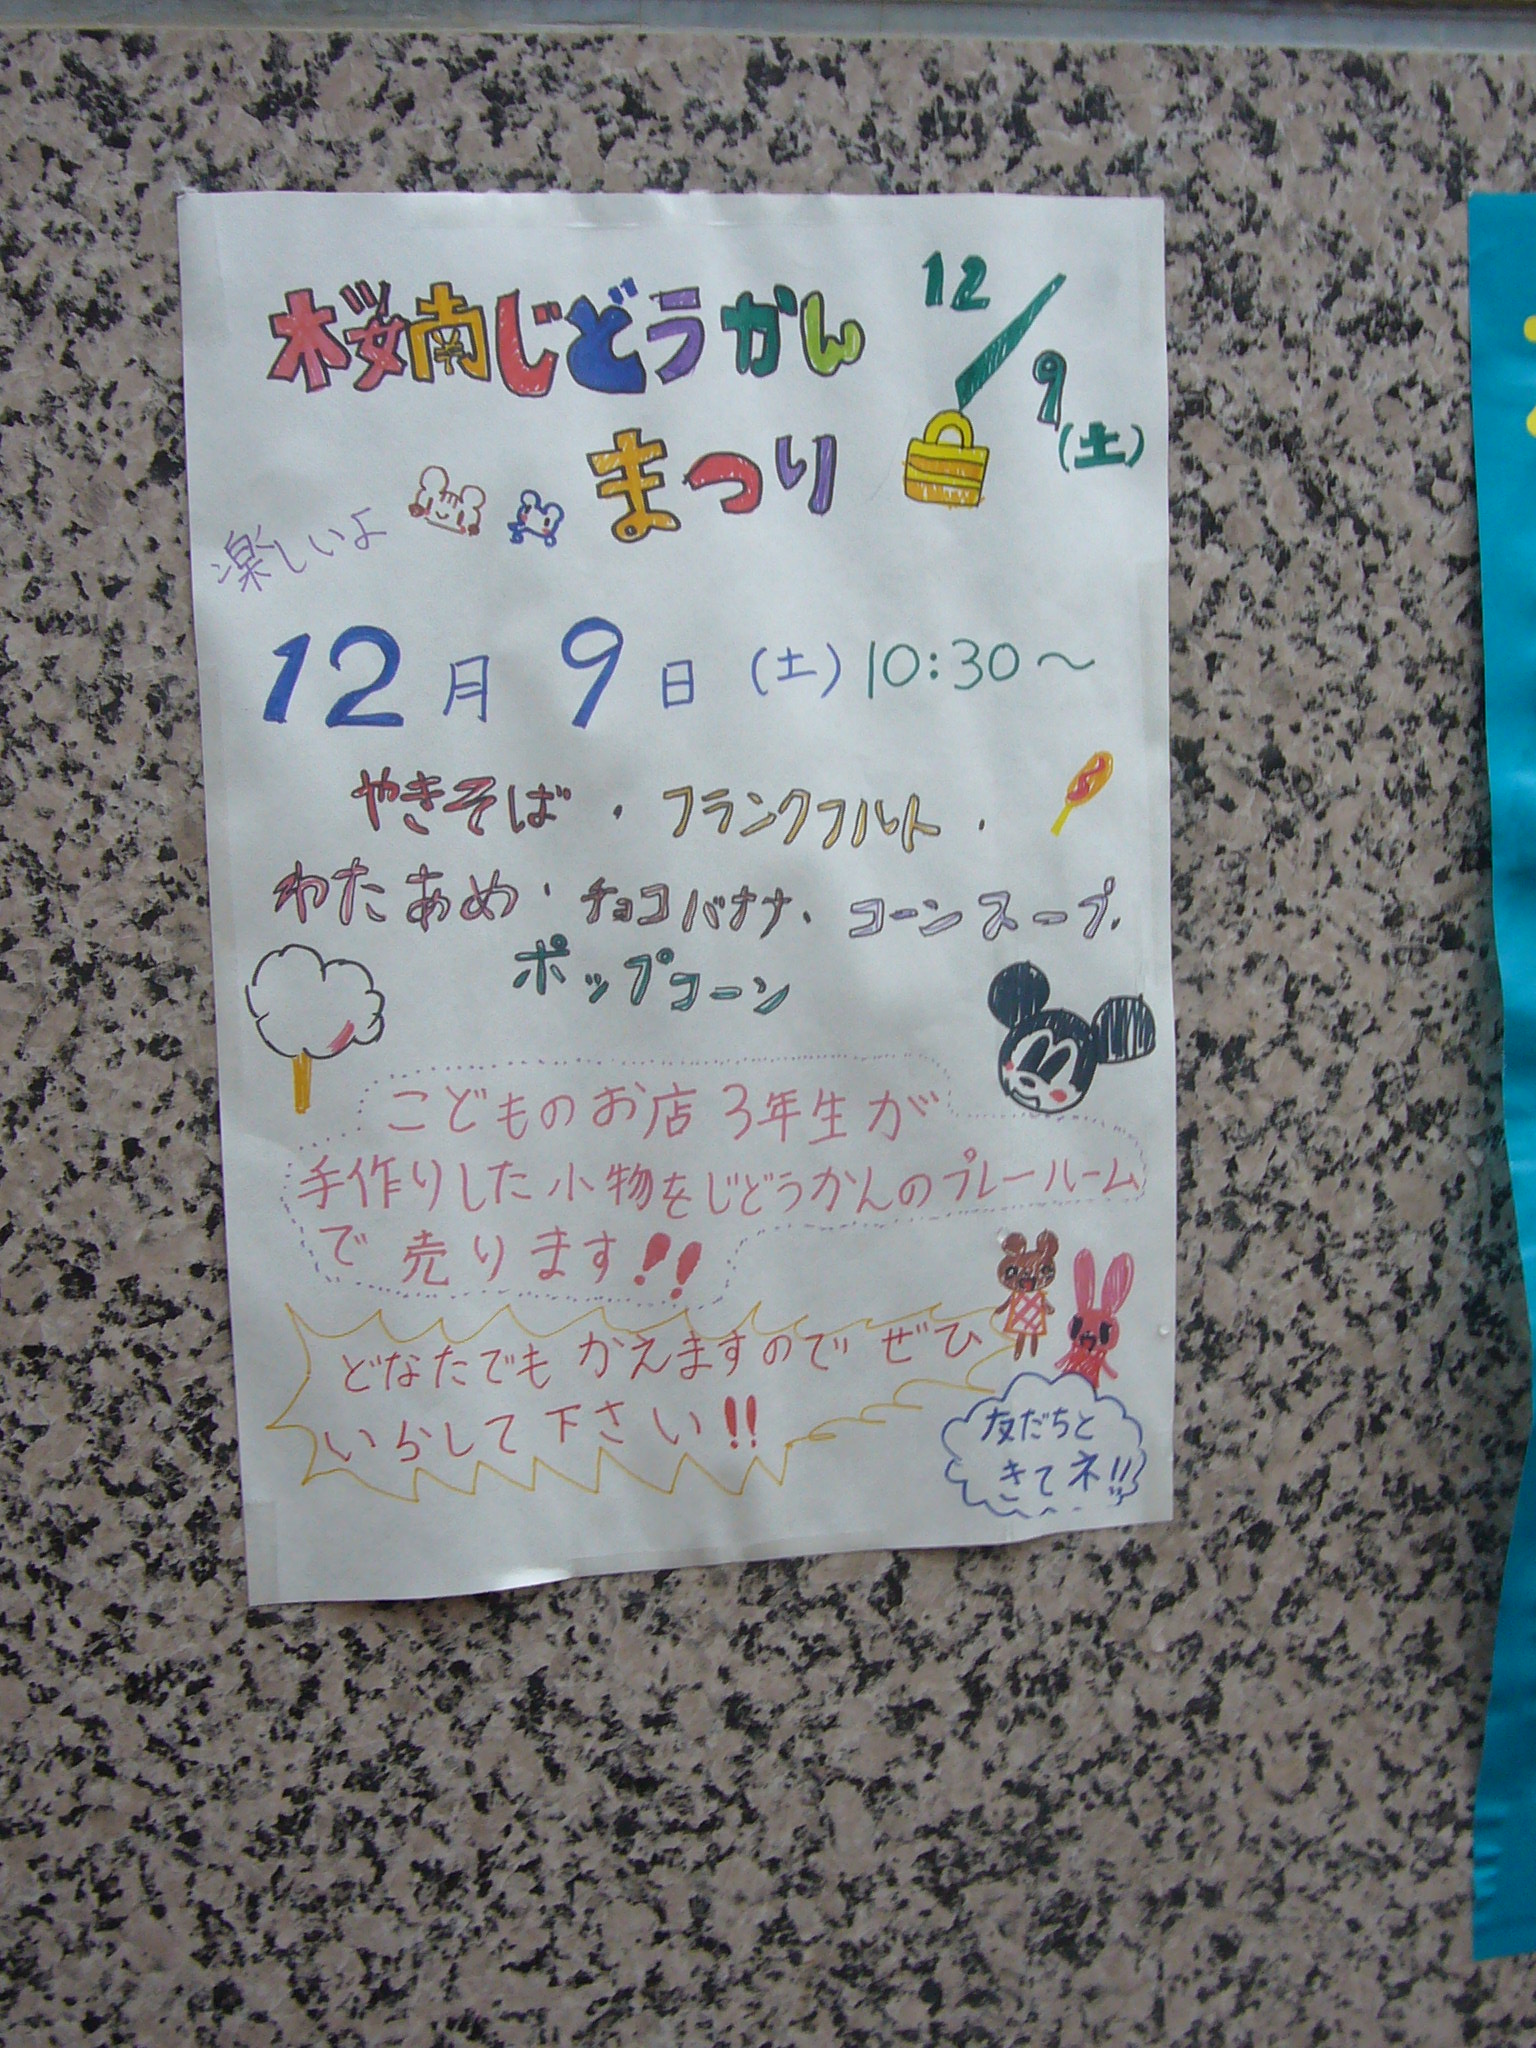 桜南じどうかん
12/9(土)
まつり
楽しいよ
12月9日(土)10:30～
やきそば・フランクフルト・
わたあめ・チョコバナナ、コーンスープ、
ポップコーン
こどものお店3年生が
手作りした小物をじどうかんのプレールーム
で売ります!!
どなたでもかえますのでぜひ
いらして下さい!!
友だちと
きてネ!!